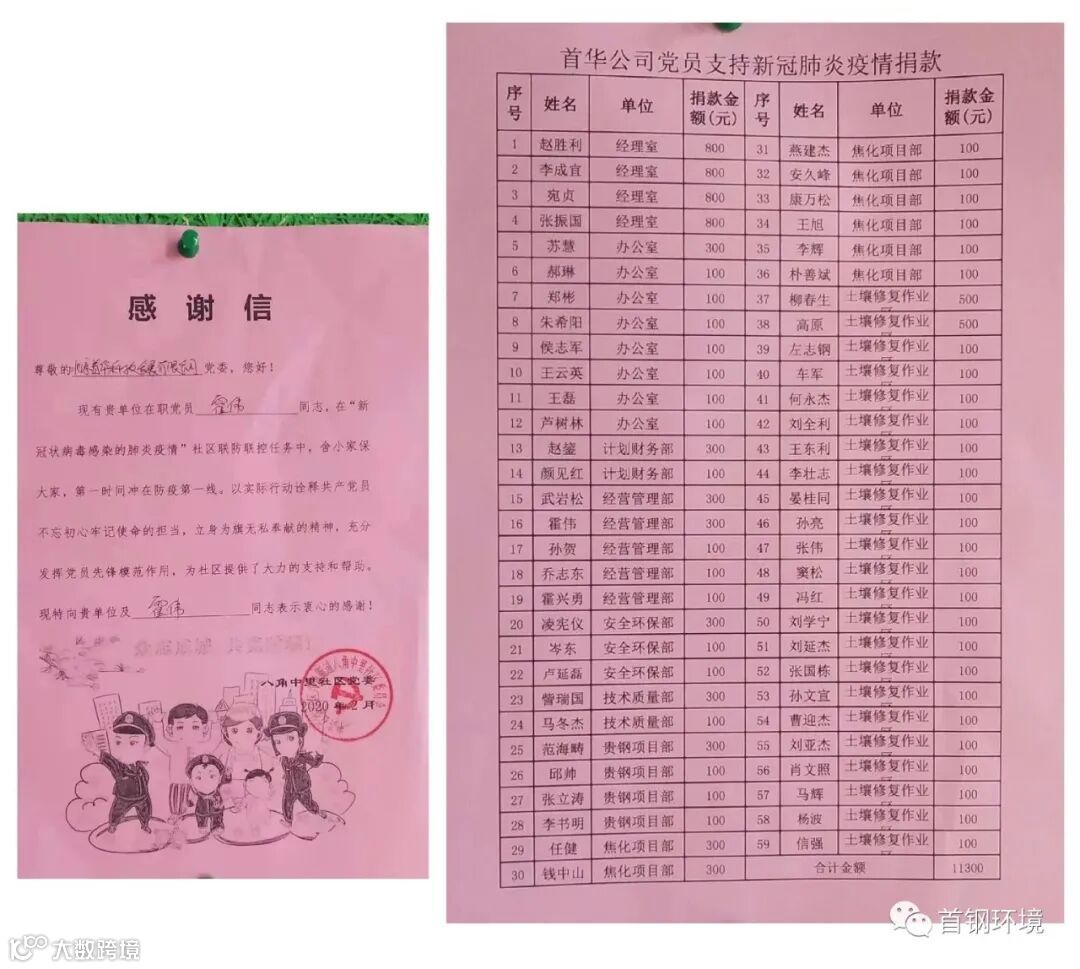 感 谢 信
尊敬的 党委，您好！
现有贵单位在职党员 霍伟 同志，在“新
冠状病毒感染的肺炎疫情”社区联防联控任务中，舍小家保
大家，第一时间冲在防疫第一线。以实际行动诠释共产党员
不忘初心牢记使命的担当，立身为旗无私奉献的精神，充分
发挥党员先锋模范作用，为社区提供了大力的支持和帮助。
现特向贵单位及 霍伟 同志表示衷心的感谢！
八角中里社区党委
2020 年 2 月
首华公司党员支持新冠肺炎疫情捐款
序号 姓名 单位 捐款金额(元) 序号 姓名 单位 捐款金额(元)
1 赵胜利 经理室 800 31 燕建杰 焦化项目部 100
2 李成宜 经理室 800 32 安久峰 焦化项目部 100
3 宛贞 经理室 800 33 康万松 焦化项目部 100
4 张振国 经理室 800 34 王旭 焦化项目部 100
5 苏慧 办公室 300 35 李辉 焦化项目部 100
6 郝琳 办公室 100 36 朴善斌 焦化项目部 100
7 郑彬 办公室 100 37 柳春生 土壤修复作业 500
8 朱希阳 办公室 100 38 高原 土壤修复作业 500
9 侯志军 办公室 100 39 左志钢 土壤修复作业 100
10 王云英 办公室 100 40 车军 土壤修复作业 100
11 王磊 办公室 100 41 何永杰 土壤修复作业 100
12 芦树林 办公室 100 42 刘全利 土壤修复作业 100
13 赵鋆 计划财务部 300 43 王东利 土壤修复作业 100
14 颜见红 计划财务部 100 44 李壮志 土壤修复作业 100
15 武岩松 经营管理部 300 45 晏桂同 土壤修复作业 100
16 霍伟 经营管理部 300 46 孙亮 土壤修复作业 100
17 孙贺 经营管理部 100 47 张伟 土壤修复作业 100
18 乔志东 经营管理部 100 48 窦松 土壤修复作业 100
19 霍兴勇 经营管理部 100 49 冯红 土壤修复作业 100
20 凌宪仪 安全环保部 300 50 刘学宁 土壤修复作业 100
21 岑东 安全环保部 100 51 刘延杰 土壤修复作业 100
22 卢延磊 安全环保部 100 52 张国栋 土壤修复作业 100
23 訾瑞国 技术质量部 300 53 孙文宣 土壤修复作业 100
24 马冬杰 技术质量部 100 54 曹迎杰 土壤修复作业 100
25 范海畴 贵钢项目部 300 55 刘亚杰 土壤修复作业 100
26 邱帅 贵钢项目部 100 56 肖文照 土壤修复作业 100
27 张立涛 贵钢项目部 100 57 马辉 土壤修复作业 100
28 李书明 贵钢项目部 100 58 杨波 土壤修复作业 100
29 任健 焦化项目部 300 59 信强 土壤修复作业 100
30 钱中山 焦化项目部 300 合计金额 11300
首钢环境
大数跨境